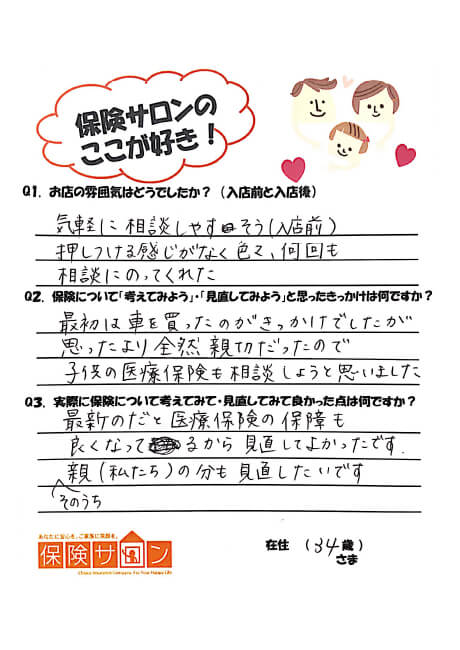 保険サロンの
ここが好き!
Q1. お店の雰囲気はどうでしたか?(入店前と入店後)
気軽に相談しやすそう(入店前)
押しつける感じがなく色々、何回も
相談にのってくれた
Q2. 保険について「考えてみよう」・「見直してみよう」と思ったきっかけは何ですか?
最初は車を買ったのがきっかけでしたが
思ったより全然親切だったので
子供の医療保険も相談しようと思いました
Q3. 実際に保険について考えてみて・見直してみて良かった点は何ですか?
最新のだと医療保険の保障も
良くなってるから見直してよかったです.
親(私たち)の分も見直したいです
そのうち
あなたに安心を、ご家族に笑顔を。
保険サロン
在住 (34歳)
さま